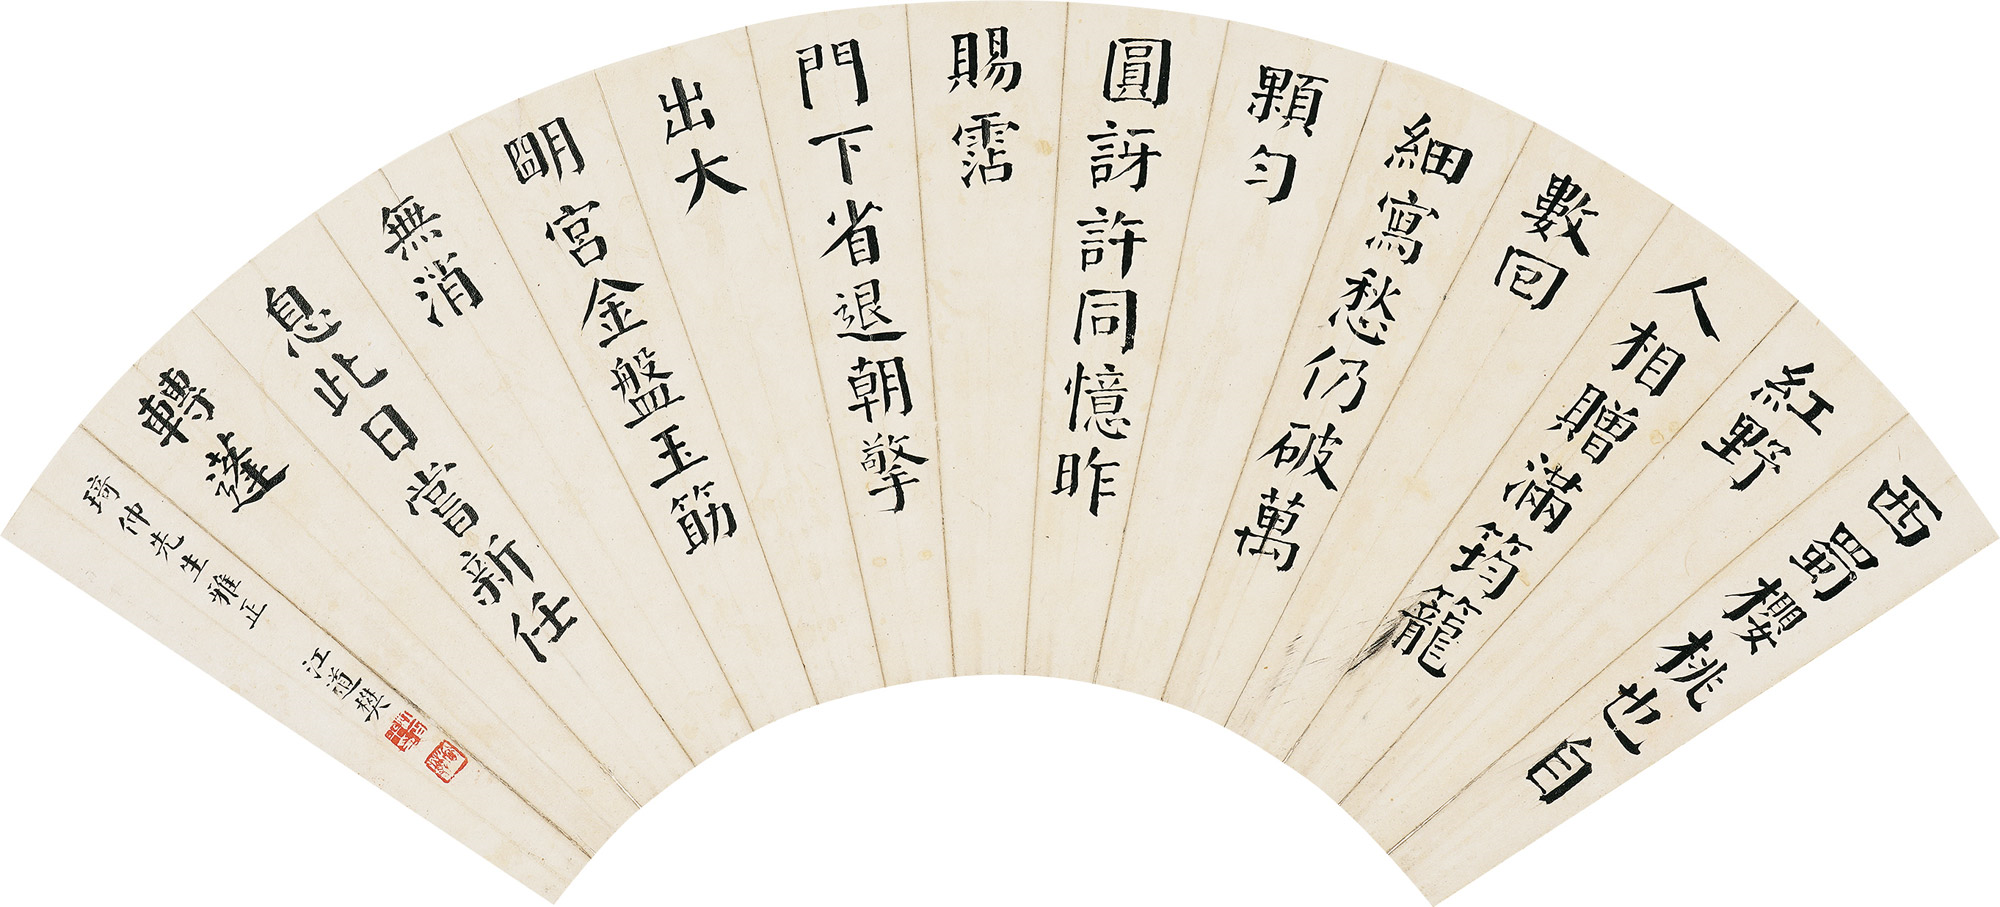 西蜀櫻桃也自
紅野
人相贈滿筠籠
數囘
細寫愁仍破萬
顆勻
圓訝許同憶昨
賜霑
門下省退朝擎
出大
朙宮金盤玉筋
無消
息此日嘗新任
轉蓬
琦仲先生雅正
江道樊